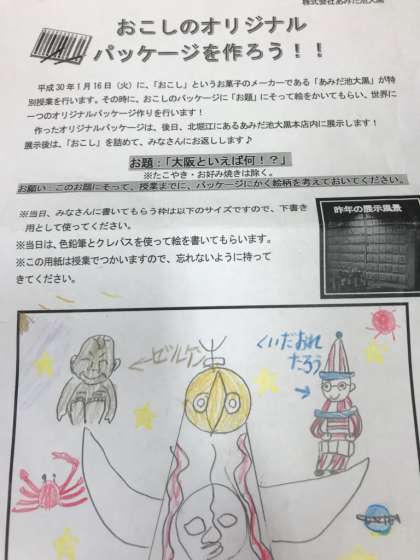 株式会社あみだ池大黒
おこしのオリジナル
パッケージを作ろう！！
平成30年1月16日（火）に、「おこし」というお菓子のメーカーである「あみだ池大黒」が特
別授業を行います。その時に、おこしのパッケージに「お題」にそって絵をかいてもらい、世界に
一つのオリジナルパッケージ作りを行います！
作ったオリジナルパッケージは、後日、北堀江にあるあみだ池大黒本店内に展示します！
展示後は、「おこし」を詰めて、みなさんにお返しします♪
お題：「大阪といえば何！？」
※たこやき・お好み焼きは除く。
お願い：このお題にそって、授業までに、パッケージにかく絵柄を考えておいてください。
※当日、みなさんに書いてもらう枠は以下のサイズですので、下書き
用として使ってください。
※当日は、色鉛筆とクレパスを使って絵を書いてもらいます。
※この用紙は授業でつかいますので、忘れないように持って
きてください。
昨年の展示風景
ビルケン
くいだおれ
たろう